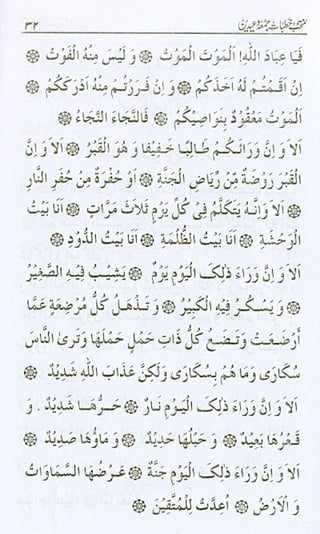 ۳۲
فَيَا عِبَادَ اللهِ! اَلْمَوْتَ الْمَوْتُ ۞ وَ لَيْسَ مِنْهُ الْفَوْتُ ۞
اِنْ اَقَمْتُمْ لَهُ اَخَذَكُمْ ۞ وَ اِنْ فَرَرْتُمْ مِنْهُ اَدْرَكَكُمْ ۞
اَلْمَوْتُ مَعْقُوْدٌ بِنَوَاصِيْكُمْ ۞ فَالنَّجَاءُ النَّجَاءُ ۞
اَلاَ وَ اِنَّ وَرَائَكُمْ طَالِبًا خَفِيْفًا وَ هُوَ الْقَبْرُ ۞ اَلاَ وَ اِنَّ
الْقَبْرَ رَوْضَةٌ مِّنْ رِّيَاضِ الْجَنَّةِ ۞ اَوْ حُفْرَةٌ مِنْ حُفَرِ النَّارِ
۞ اَلاَ وَ اِنَّهُ يَتَكَلَّمُ فِىْ كُلِّ يَوْمٍ ثَلاَثَ مَرَّاتٍ ۞ اَنَا بَيْتُ
الْوَحْشَةِ ۞ اَنَا بَيْتُ الظُّلْمَةِ ۞ اَنَا بَيْتُ الدُّوْدِ ۞
اَلاَ وَ اِنَّ وَرَاءَ ذٰلِكَ الْيَوْمِ يَوْمٌ ۞ يَشِيْبُ فِيْهِ الصَّغِيْرُ
۞ وَ يَسْكُرُ فِيْهِ الْكَبِيْرُ ۞ وَ تَذْهَلُ كُلُّ مُرْضِعَةٍ عَمَّا
اَرْضَعَتْ وَتَضَعُ كُلُّ ذَاتِ حَمْلٍ حَمْلَهَا وَتَرىٰ النَّاسَ
سُكَارىٰ وَمَا هُمْ بِسُكَارىٰ وَلٰكِنَّ عَذَابَ اللهِ شَدِيْدٌ ۞
اَلاَ وَ اِنَّ وَرَاءَ ذٰلِكَ الْيَوْمِ نَارٌ ۞ حَرُّهَا شَدِيْدٌ . وَ
قَعْرُهَا بَعِيْدٌ ۞ وَ حَبْلُهَا حَدِيْدٌ ۞ وَ مَاؤُهَا صَدِيْدٌ ۞
اَلاَ وَ اِنَّ وَرَاءَ ذٰلِكَ الْيَوْمِ جَنَّةٌ ۞ عَرْضُهَا السَّمَاوَاتُ
وَ الْاَرْضُ ۞ اُعِدَّتْ لِلْمُتَّقِيْنَ ۞